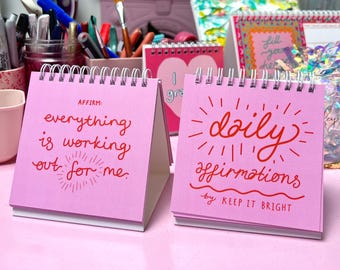 AFFIRM:
everything
is working
out for me.
daily
affirmations
by KEEP IT BRIGHT
I